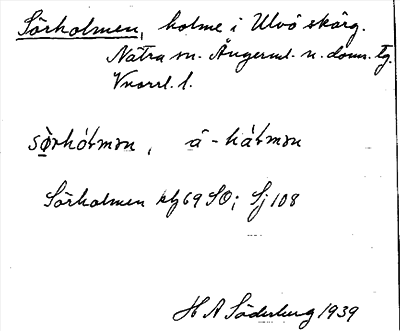 Sörholmen, holme i Ulvö skärg.
Nätra sn. Ångerml. n. doms. tg.
Vnorrl. l.
sö̀rhóƚmɘn, â - háƚmɘn
Sörholmen 69 SO; Sj 108
H A Söderberg 1939